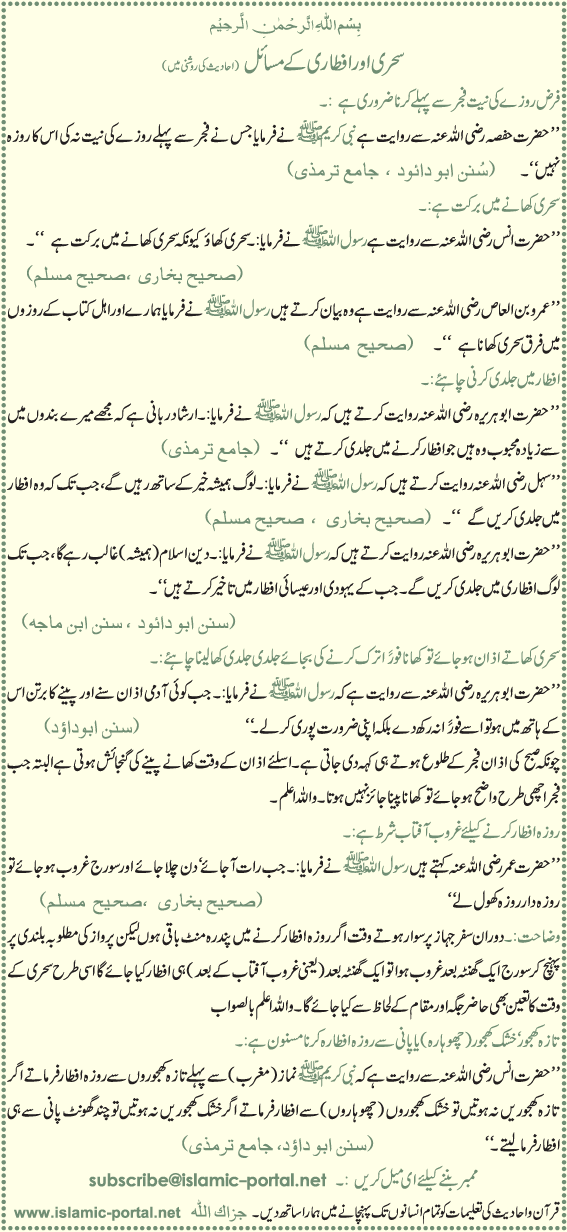 بِسْمِ اللهِ الرَّحْمٰنِ الرَّحِيْمِ
سحری اور افطاری کے مسائل (احادیث کی روشنی میں)
فرض روزے کی نیت فجر سے پہلے کرنا ضروری ہے :۔
’’حضرت حفصہ رضی اللہ عنہ سے روایت ہے نبی کریم ﷺ نے فرمایا جس نے فجر سے پہلے روزے کی نیت نہ کی اس کا روزہ
نہیں‘‘۔ (سُنن ابو دائود ، جامع ترمذی)
سحری کھانے میں برکت ہے:۔
’’حضرت انس رضی اللہ عنہ سے روایت ہے رسول اللہ ﷺ نے فرمایا:۔ سحری کھاؤ کیونکہ سحری کھانے میں برکت ہے ‘‘۔
(صحیح بخاری ،صحیح مسلم)
’’عمرو بن العاص رضی اللہ عنہ سے روایت ہے وہ بیان کرتے ہیں رسول اللہ ﷺ نے فرمایا ہمارے اور اہل کتاب کے روزوں
میں فرق سحری کھانا ہے ‘‘۔ (صحیح مسلم)
افطار میں جلدی کرنی چاہئے:۔
’’حضرت ابو ہریرہ رضی اللہ عنہ روایت کرتے ہیں کہ رسول اللہ ﷺ نے فرمایا:۔ ارشاد ربانی ہے کہ مجھے میرے بندوں میں
سے زیادہ محبوب وہ ہیں جو افطار کرنے میں جلدی کرتے ہیں ‘‘۔ (جامع ترمذی)
’’سہل رضی اللہ عنہ روایت کرتے ہیں کہ رسول اللہ ﷺ نے فرمایا:۔ لوگ ہمیشہ خیر کے ساتھ رہیں گے، جب تک کہ وہ افطار
میں جلدی کریں گے ‘‘۔ (صحیح بخاری ، صحیح مسلم)
’’حضرت ابو ہریرہ رضی اللہ عنہ روایت کرتے ہیں کہ رسول اللہ ﷺ نے فرمایا:۔ دین اسلام (ہمیشہ) غالب رہے گا، جب تک
لوگ افطاری میں جلدی کریں گے۔ جب کے یہودی اور عیسائی افطار میں تاخیر کرتے ہیں‘‘۔
(سنن ابو دائود ، سنن ابن ماجہ)
سحری کھاتے اذان ہوجائے تو کھانا فورًا ترک کرنے کی بجائے جلدی جلدی کھا لینا چاہئے:۔
’’حضرت ابو ہریرہ رضی اللہ عنہ سے روایت ہے کہ رسول اللہ ﷺ نے فرمایا:۔ جب کوئی آدمی اذان سنے اور پینے کا برتن اس
کے ہاتھ میں ہو تو اسے فورًا نہ رکھ دے بلکہ اپنی ضرورت پوری کرلے۔‘‘ (سنن ابوداؤد)
چونکہ صبح کی اذان فجر کے طلوع ہوتے ہی کہہ دی جاتی ہے۔ اسلئے اذان کے وقت کھانے پینے کی گنجائش ہوتی ہے البتہ جب
فجر اچھی طرح واضح ہوجائے تو کھانا پینا جائز نہیں ہوتا۔ واللہ اعلم ۔
روزہ افطار کرنے کیلئے غروب آفتاب شرط ہے:۔
’’حضرت عمر رضی اللہ عنہ کہتے ہیں رسول اللہ ﷺ نے فرمایا:۔ جب رات آجائے‘ دن چلا جائے اور سورج غروب ہوجائے تو
روزہ دار روزہ کھول لے‘‘ (صحیح بخاری ،صحیح مسلم)
وضاحت:۔ دوران سفر جہاز پر سوار ہوتے وقت اگر روزہ افطار کرنے میں پندرہ منٹ باقی ہوں لیکن پرواز کی مطلوبہ بلندی پر
پہنچ کر سورج ایک گھنٹہ بعد غروب ہوا تو ایک گھنٹہ بعد (یعنی غروب آفتاب کے بعد) ہی افطار کیا جائے گا اسی طرح سحری کے
وقت کا تعین بھی حاضر جگہ اور مقام کے لحاظ سے کیا جائے گا۔ واللہ اعلم بالصواب
تازہ کھجور‘ خشک کھجور (چھوہارہ) یا پانی سے روزہ افطارہ کرنا مسنون ہے:۔
’’حضرت انس رضی اللہ عنہ سے روایت ہے کہ نبی کریم ﷺ نماز (مغرب) سے پہلے تازہ کھجوروں سے روزہ افطار فرماتے اگر
تازہ کھجوریں نہ ہوتیں تو خشک کھجوروں (چھوہاروں) سے افطار فرماتے اگر خشک کھجوریں نہ ہوتیں تو چند گھونٹ پانی سے ہی
افطار فرمالیتے۔‘‘ (سنن ابو داؤد، جامع ترمذی)
ممبر بننے کیلئے ای میل کریں :۔ subscribe@islamic-portal.net
قرآن و احادیث کی تعلیمات کو تمام انسانوں تک پہنچانے میں ہمارا ساتھ دیں۔ جزاك الله www.islamic-portal.net